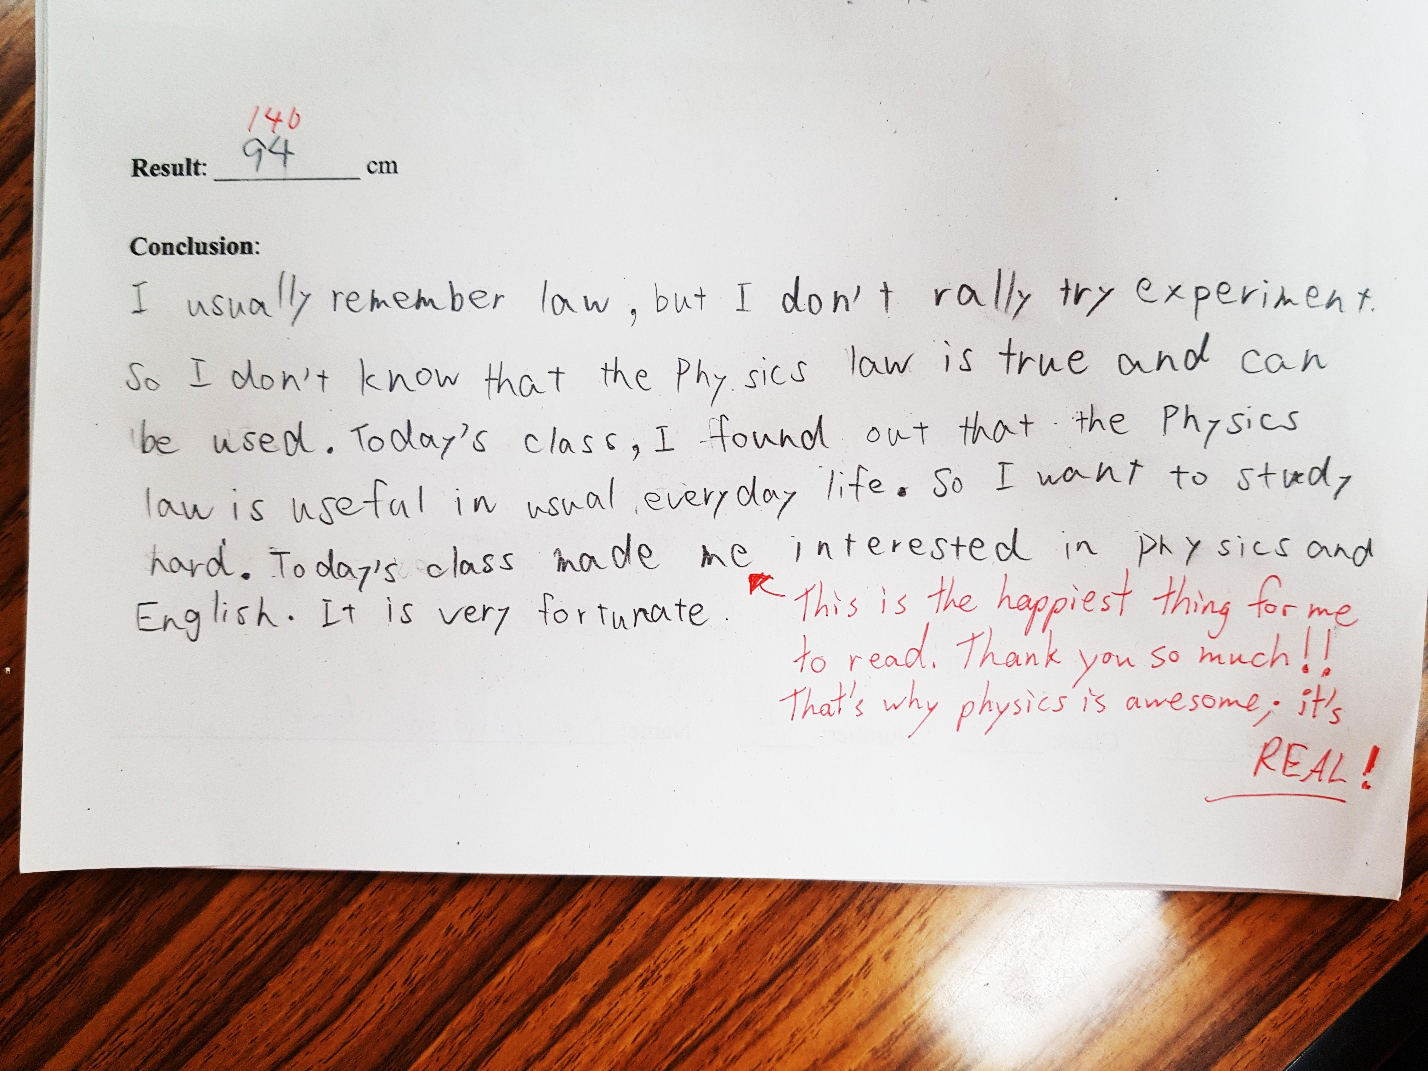 140
Result: 94 cm
Conclusion:
I usually remember law, but I don't rally try experiment.
So I don't know that the Physics law is true and can
be used. Today's class, I found out that the Physics
law is useful in usual everyday life. So I want to study
hard. Today's class made me interested in physics and
English. It is very fortunate.
This is the happiest thing for me
to read. Thank you so much!!
That's why physics is awesome; it's
REAL!